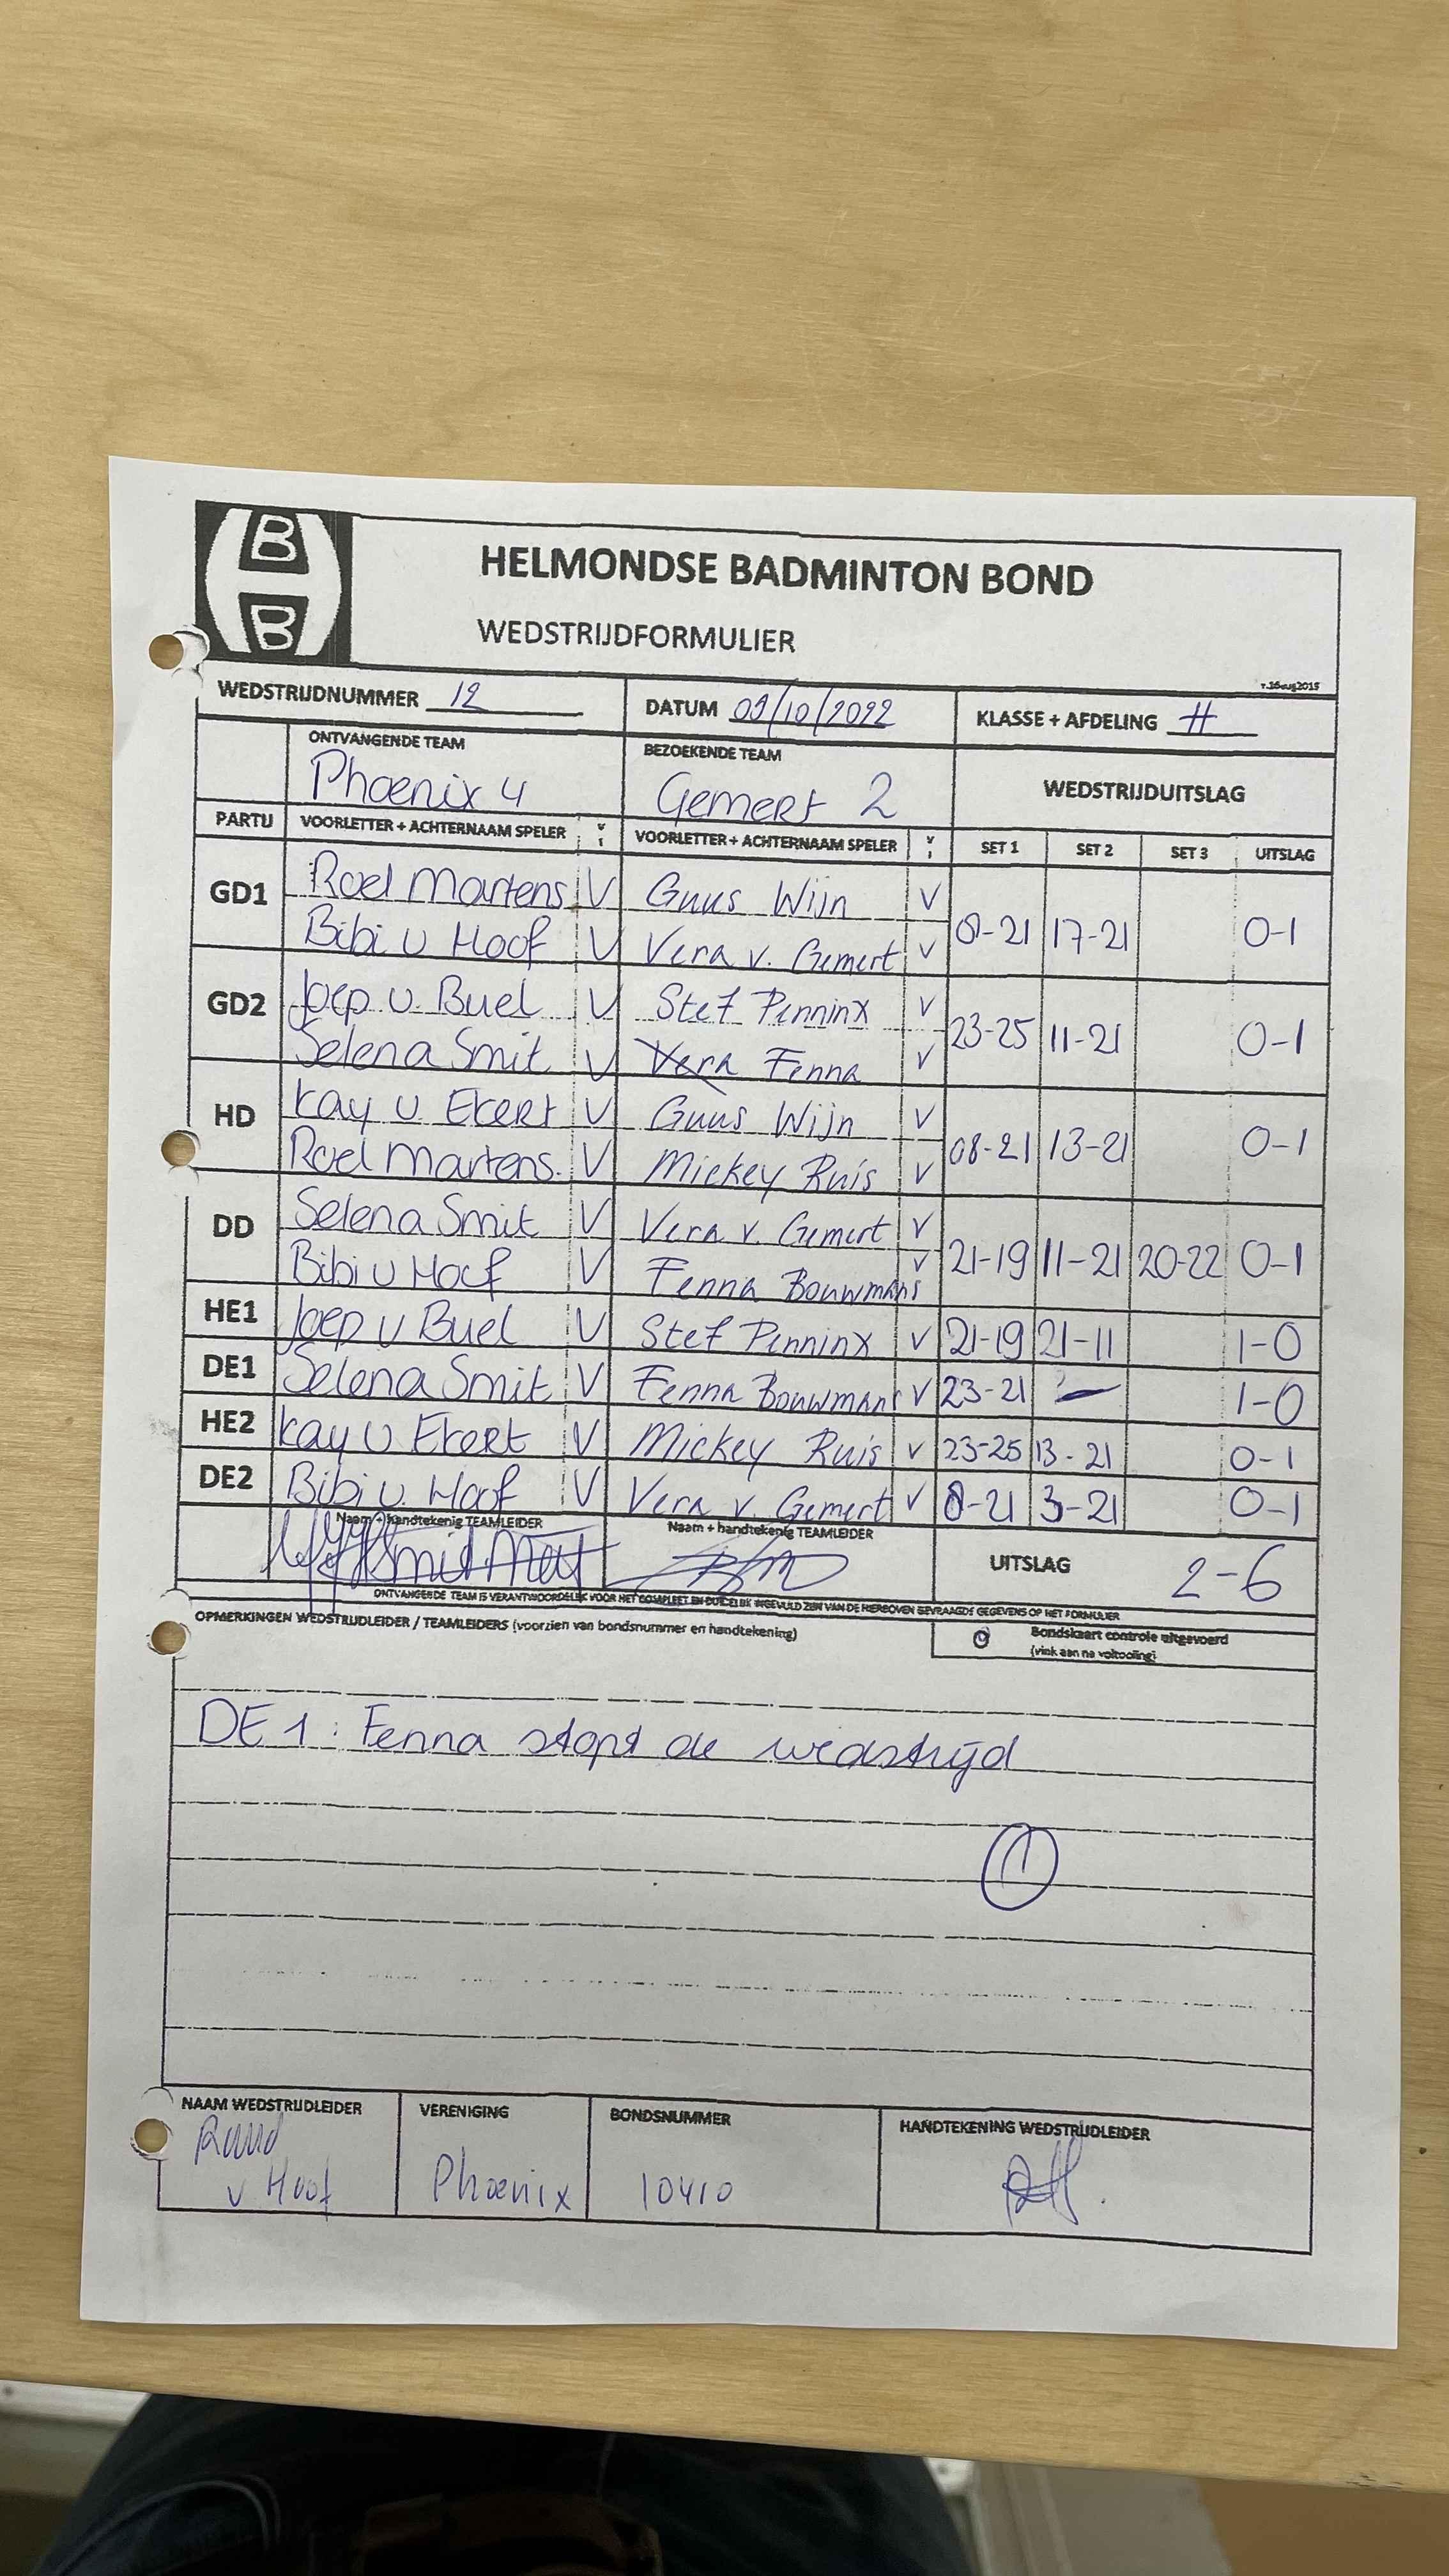 B
B
HELMONDSE BADMINTON BOND
WEDSTRIJDFORMULIER
v.16aug2015
WEDSTRIJDNUMMER 12 DATUM 09/10/2022 KLASSE + AFDELING H
ONTVANGENDE TEAM BEZOEKENDE TEAM WEDSTRIJDUITSLAG
Phoenix 4 Gemert 2
PARTIJ VOORLETTER + ACHTERNAAM SPELER VOORLETTER + ACHTERNAAM SPELER SET 1 SET 2 SET 3 UITSLAG
GD1 Roel Martens V Guus Wijn V
Bibi v Hoof V Vera v. Gemert V 8-21 17-21 0-1
GD2 Joep v. Buel V Stef Penninx V
Selena Smit V Vera Fenna V 23-25 11-21 0-1
HD Kay v. Ekert V Guus Wijn V
Roel Martens. V Mickey Ruis V 08-21 13-21 0-1
DD Selena Smit V Vera v. Gemert V
Bibi v Hoof V Fenna Bouwmans V 21-19 11-21 20-22 0-1
HE1 Joep v Buel V Stef Penninx V 21-19 21-11 1-0
DE1 Selena Smit V Fenna Bouwmans V 23-21 - 1-0
HE2 Kay v Ekert V Mickey Ruis V 23-25 13-21 0-1
DE2 Bibi v. Hoof V Vera v. Gemert V 8-21 3-21 0-1
Naam + handtekenig TEAMLEIDER Naam + handtekenig TEAMLEIDER UITSLAG 2-6
ONTVANGENDE TEAM IS VERANTWOORDELIJK VOOR HET COMPLEET EN DUIDELIJK INGEVULD ZIJN VAN DE HIERBOVEN GEVRAAGDE GEGEVENS OP HET FORMULIER
OPMERKINGEN WEDSTRIJDLEIDER / TEAMLEIDERS (voorzien van bondsnummer en handtekening)
Bondskaart controle uitgevoerd
(vink aan na voltooiing)
DE 1 : Fenna stopt de wedstrijd
1
NAAM WEDSTRIJDLEIDER VERENIGING BONDSNUMMER HANDTEKENING WEDSTRIJDLEIDER
Ruud
v Hoof Phoenix 10410